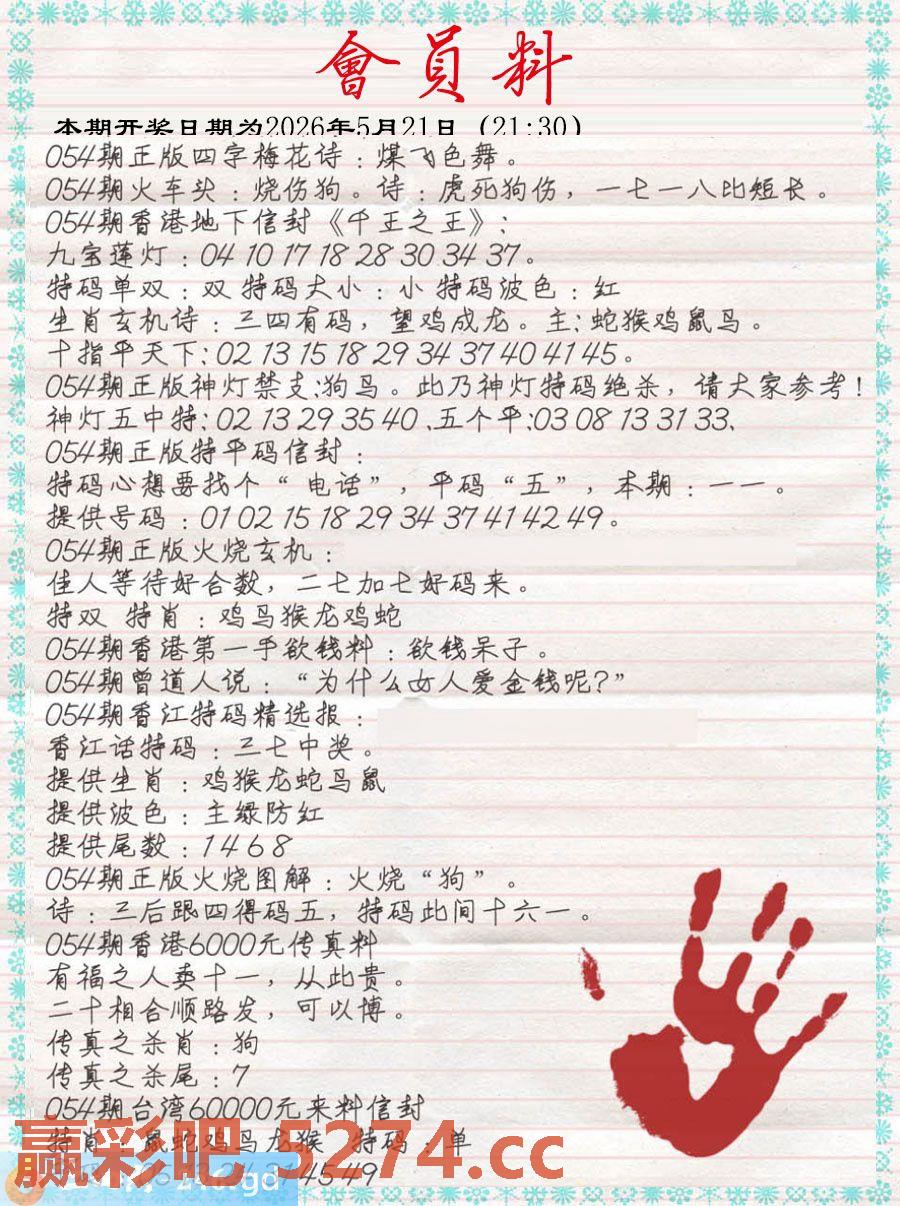 會員料
本期开奖日期为2026年5月21日（21:30）
054期正版四字梅花诗：煤飞色舞。
054期火车头：烧伤狗。诗：虎死狗伤，一七一八比短长。
054期香港地下信封《千王之王》：
九宝莲灯：04 10 17 18 28 30 34 37。
特码单双：双 特码大小：小 特码波色：红
生肖玄机诗：三四有码，望鸡成龙。主：蛇猴鸡鼠马。
十指平天下：02 13 15 18 29 34 37 40 41 45。
054期正版神灯禁支:狗马。此乃神灯特码绝杀，请大家参考！
神灯五中特：02 13 29 35 40 、五个平：03 08 13 31 33、
054期正版特平码信封：
特码心想要找个“电话”，平码“五”，本期：一一。
提供号码：01 02 15 18 29 34 37 41 42 49。
054期正版火烧玄机：
佳人等待好合数，二七加七好码来。
特双 特肖：鸡马猴龙鸡蛇
054期香港第一手欲钱料：欲钱呆子。
054期曾道人说：“为什么女人爱金钱呢?”
054期香江特码精选报：
香江话特码：三七中奖。
提供生肖：鸡猴龙蛇马鼠
提供波色：主绿防红
提供尾数：1 4 6 8
054期正版火烧图解：火烧“狗”。
诗：三后跟四得码五，特码此间十六一。
054期香港6000元传真料
有福之人卖十一，从此贵。
二十相合顺路发，可以博。
传真之杀肖：狗
传真之杀尾：7
054期台湾60000元来料信封
特肖：鼠蛇鸡马龙猴 特码：单
赢彩吧.5274.cc
45 49